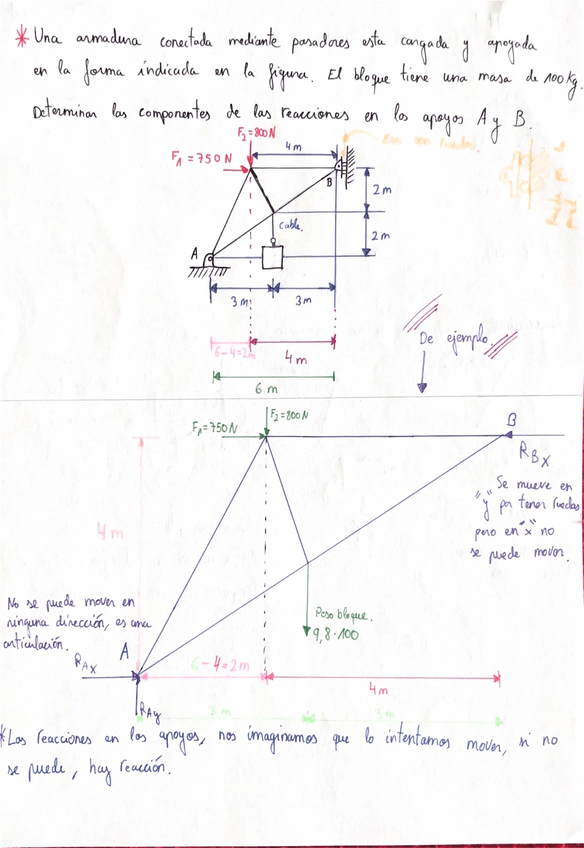 * Una armadura conectada mediante pasadores esta cargada y apoyada
en la forma indicada en la figura. El bloque tiene una masa de 100 kg.
Determinar las componentes de las reacciones en los apoyos A y B.
F₂=800N
F₁=750N
4 m
B
2 m
cable.
2 m
A
3 m
3 m
6-4=2m
4 m
6 m
De ejemplo.
F₁=750N
F₂=800N
B
R_Bx
Se mueve en
"y" por tener ruedas
pero en "x" no
se puede mover.
4 m
No se puede mover en
ninguna dirección, es una
articulación.
Peso bloque.
9,8·100
A
R_Ax
6-4=2m
4 m
R_Ay
3 m
3 m
* Las reacciones en los apoyos, nos imaginamos que lo intentamos mover, si no
se puede, hay reacción.